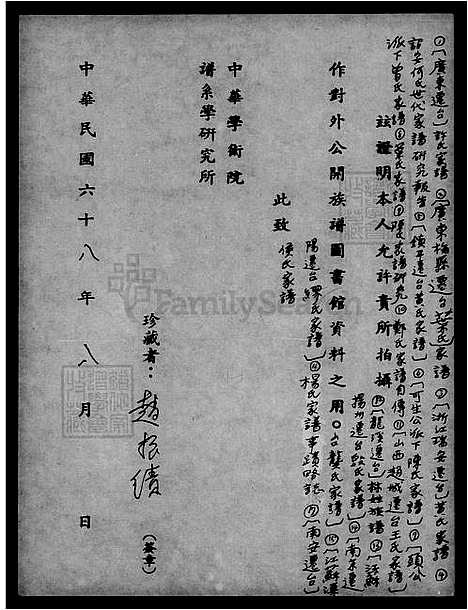 ①「廣東遷台」許氏家譜 ②「廣東梅縣遷台」葉氏家譜 ③「浙江瑞安遷台」黃氏家譜 ④
詔安何氏世代家譜研究報告 ⑤「鎮平遷台黃氏家譜」⑥「可生公派下陳氏家譜」⑦「頭公
派下曾氏家譜」⑧葉氏家譜 ⑨陳氏家譜研究 ⑩鄭氏家譜自傳 ⑪「山西趙城遷台王氏家譜」
茲證明本人允許貴所拍攝
⑫「龍溪遷台」林姓族譜 ⑬「江蘇
揚州遷台殷氏家譜」⑭「南京遷
作對外公開族譜圖書館資料之用。
台龔氏家譜」⑮「江蘇溧
陽遷台繆氏家譜」⑯楊氏家譜事蹟略誌 ⑰「南安遷台」
侯氏家譜
此致
中華學術院
譜系學研究所
珍藏者：趙振績（簽章）
中華民國六十八年八月 日
FamilySearch